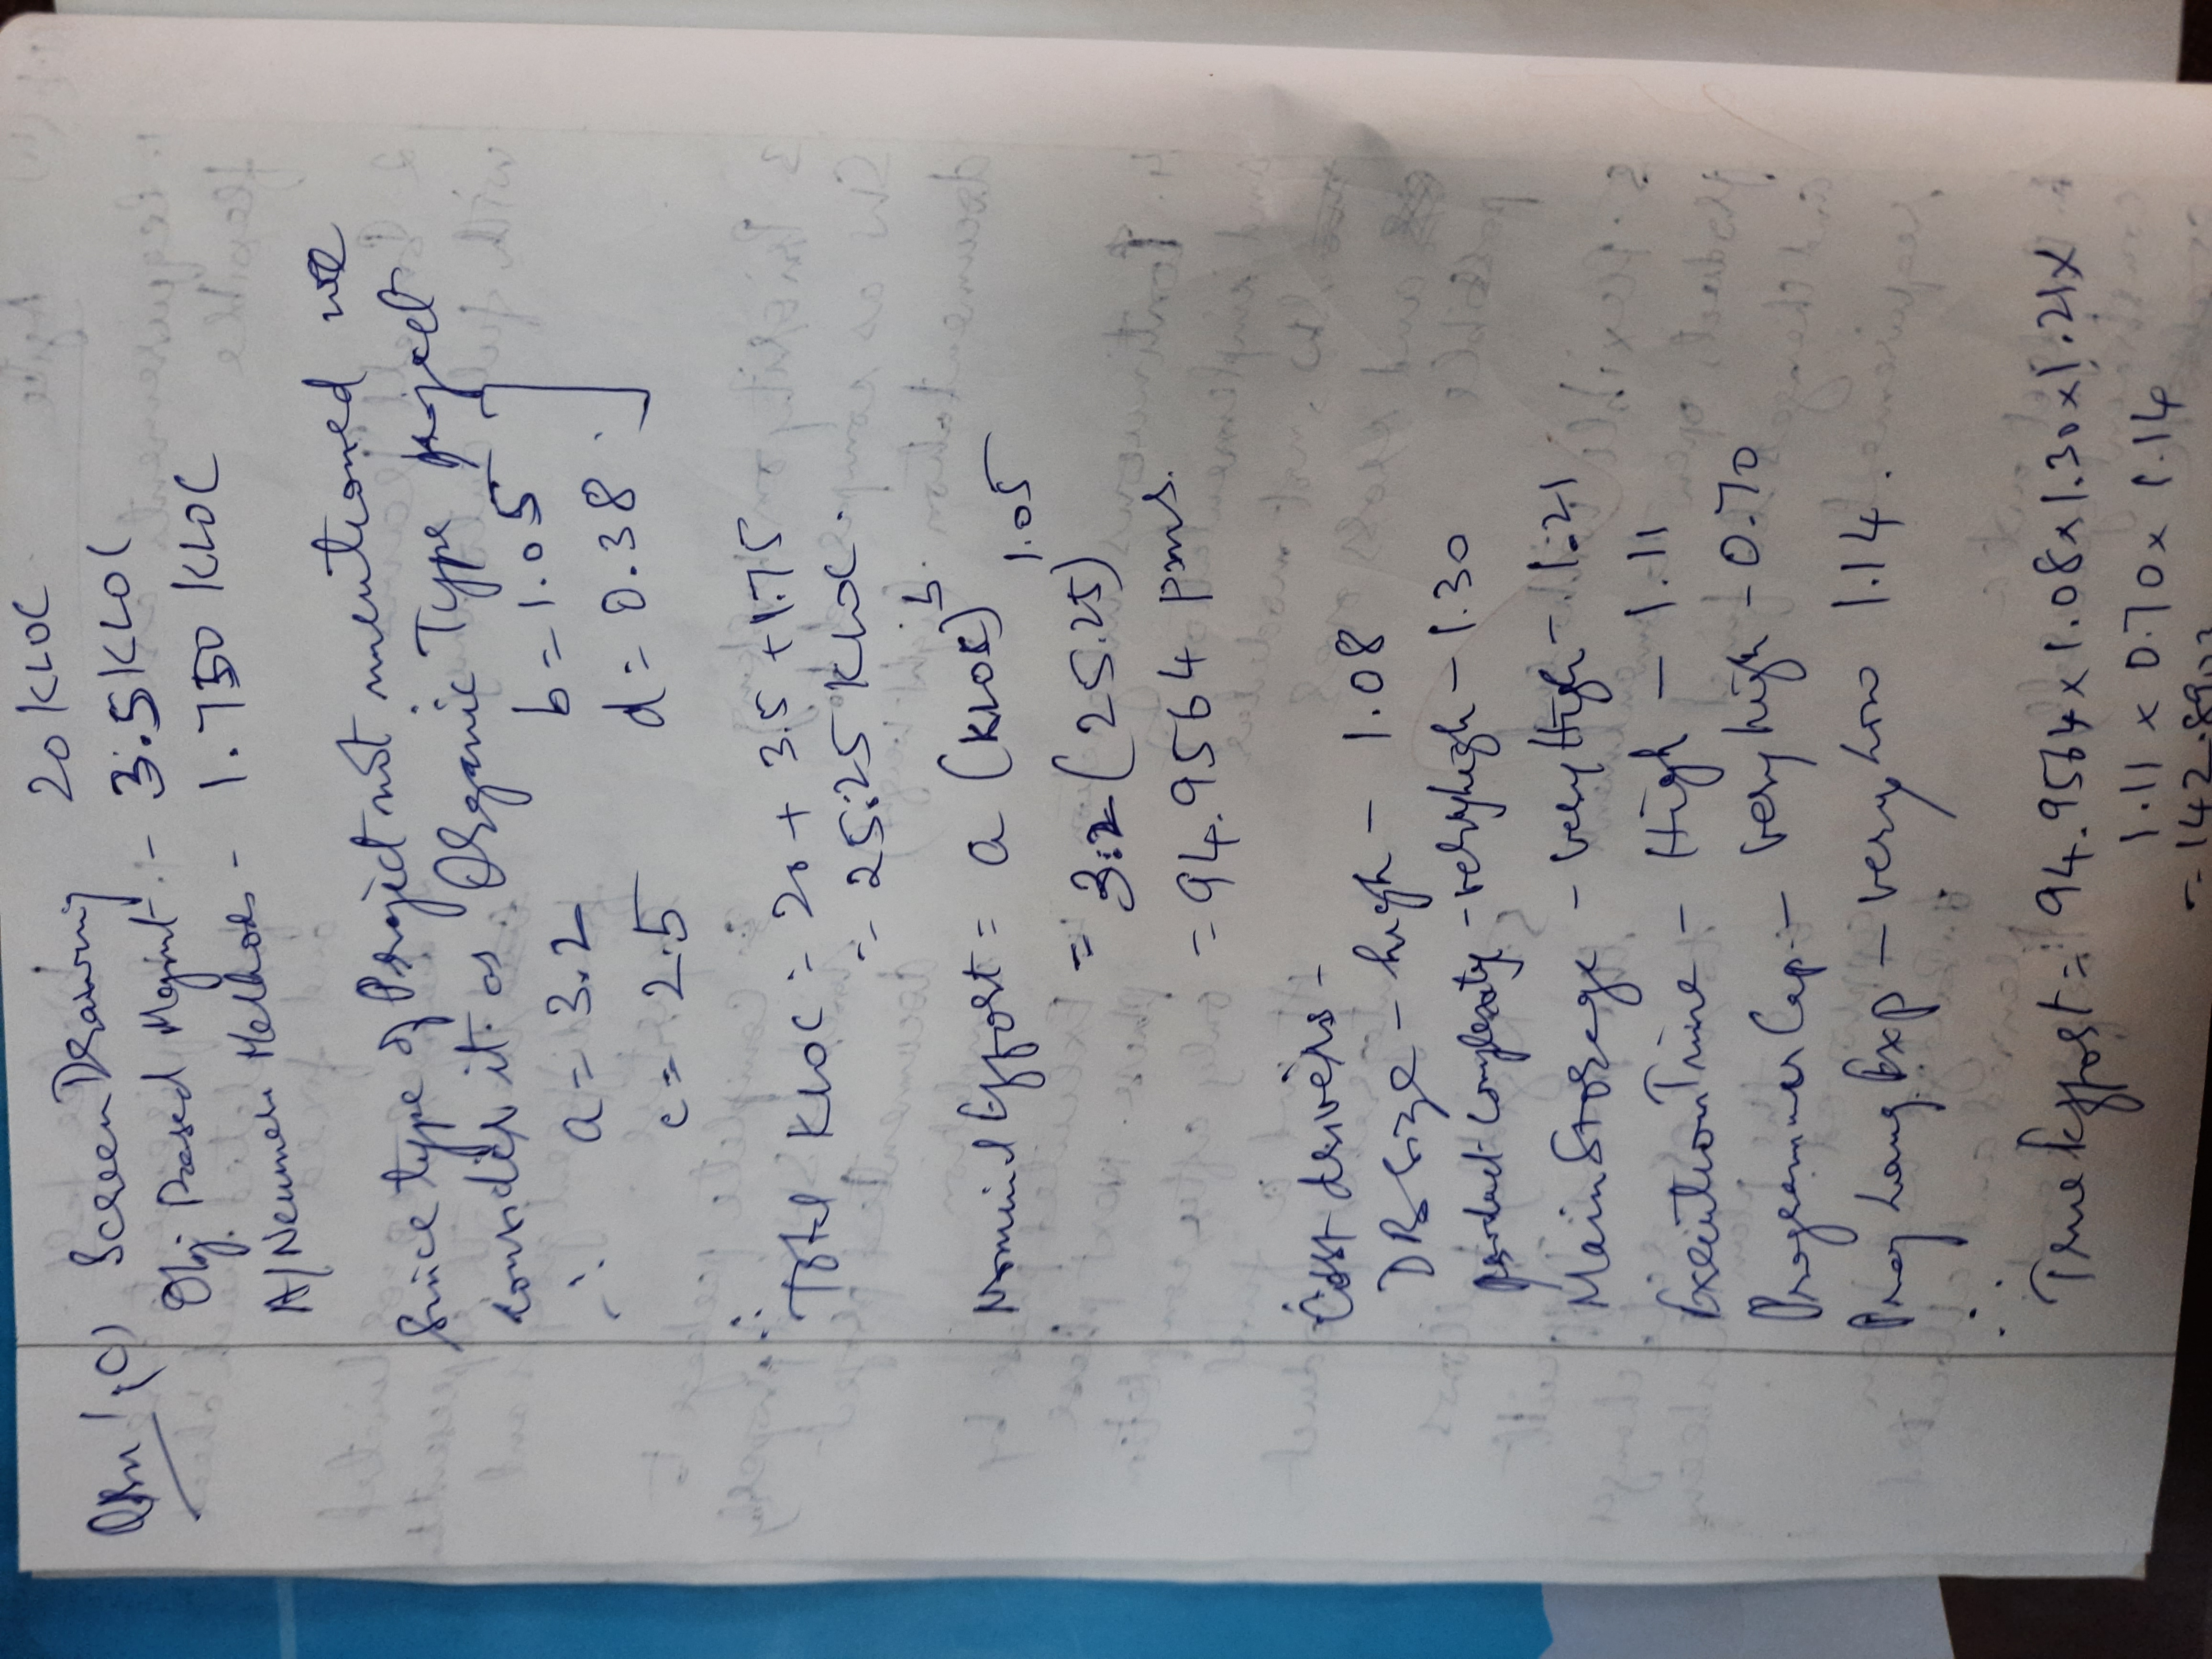 Qsn 1, c) Screen Drawing 20 KLOC
Obj. Based Mgmt. - 3.5 KLOC
A/Numer Methods - 1.750 KLOC
Since type of Project not mentioned we
consider it as Organic Type project
∴ a = 3.2 b = 1.05
c = 2.5 d = 0.38
∴
Total KLOC = 20 + 3.5 + 1.75
= 25.25 KLOC.
Nominal Effort = a (KLOC)^b
= 3.2 (25.25)^1.05
= 94.9564 pms.
Cost drivers -
DB Size - high - 1.08
product complexity - very high - 1.30
Main Storage - very High - 1.21
Execution Time - High - 1.11
Programmer Cap. - very high - 0.70
Prog Lang. Exp - very Low 1.14.
∴
True Effort = 94.9564 x 1.08 x 1.30 x 1.21 x
1.11 x 0.70 x 1.14